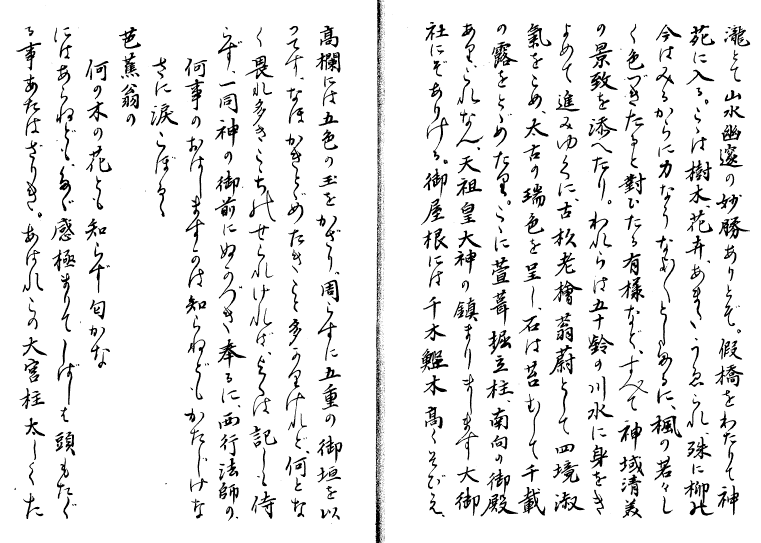 瀧とて山水幽邃の妙勝ありとぞ。假橋をわたりて神
苑に入る。こゝは樹木花卉、あまたうゑられ、殊に柳の
今はみるからに力なうなめしとしあるに、楓の若々し
く色づきたると對ひたる有様など、すべて神域清美
の景致を添へたり。われらは五十鈴の川水に身をき
よめて進みゆくに、古杉老檜蓊蔚として四境淑
氣をこめ、太古の瑞色を呈し、石は苔むして千載
の露をとゞめたり。こゝに萱葺掘立柱、南向の御殿
あり。これなん、天祖皇大神の鎮まりまします大御
社にぞありける。御屋根には千木鰹木高くそびえ、
高欄には五色の玉をかざり、周らすに五重の御垣を以
つてす。なほかきとゞめたきこと多かりけれど、何とな
く畏れ多きこゝちのせられければ、こゝには記し侍
らず。一同神の御前にぬかづき奉るに、西行法師の、
何事のおはしますかは知らねどもかたじけな
さに涙こぼるゝ
芭蕉翁の
何の木の花とも知らず匂かな
にはあらねども、たゞ感極まりてしばしは頭もたぐ
る事あたはざりき。あはれこの大宮柱太しくた